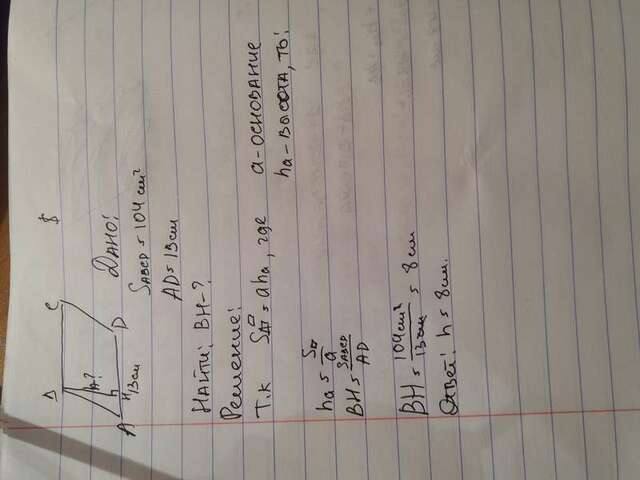 B C
h?
A H 13 cm D
Дано:
SABCD = 104 cm²
AD = 13 cm
Найти: BH-?
Решение:
Т.к S▱ = aha, где a - основание
ha - высота, то:
ha = S▱/a
BH = SABCD/AD
BH = 104 cm²/13 cm = 8 cm
Ответ: h = 8 cm.